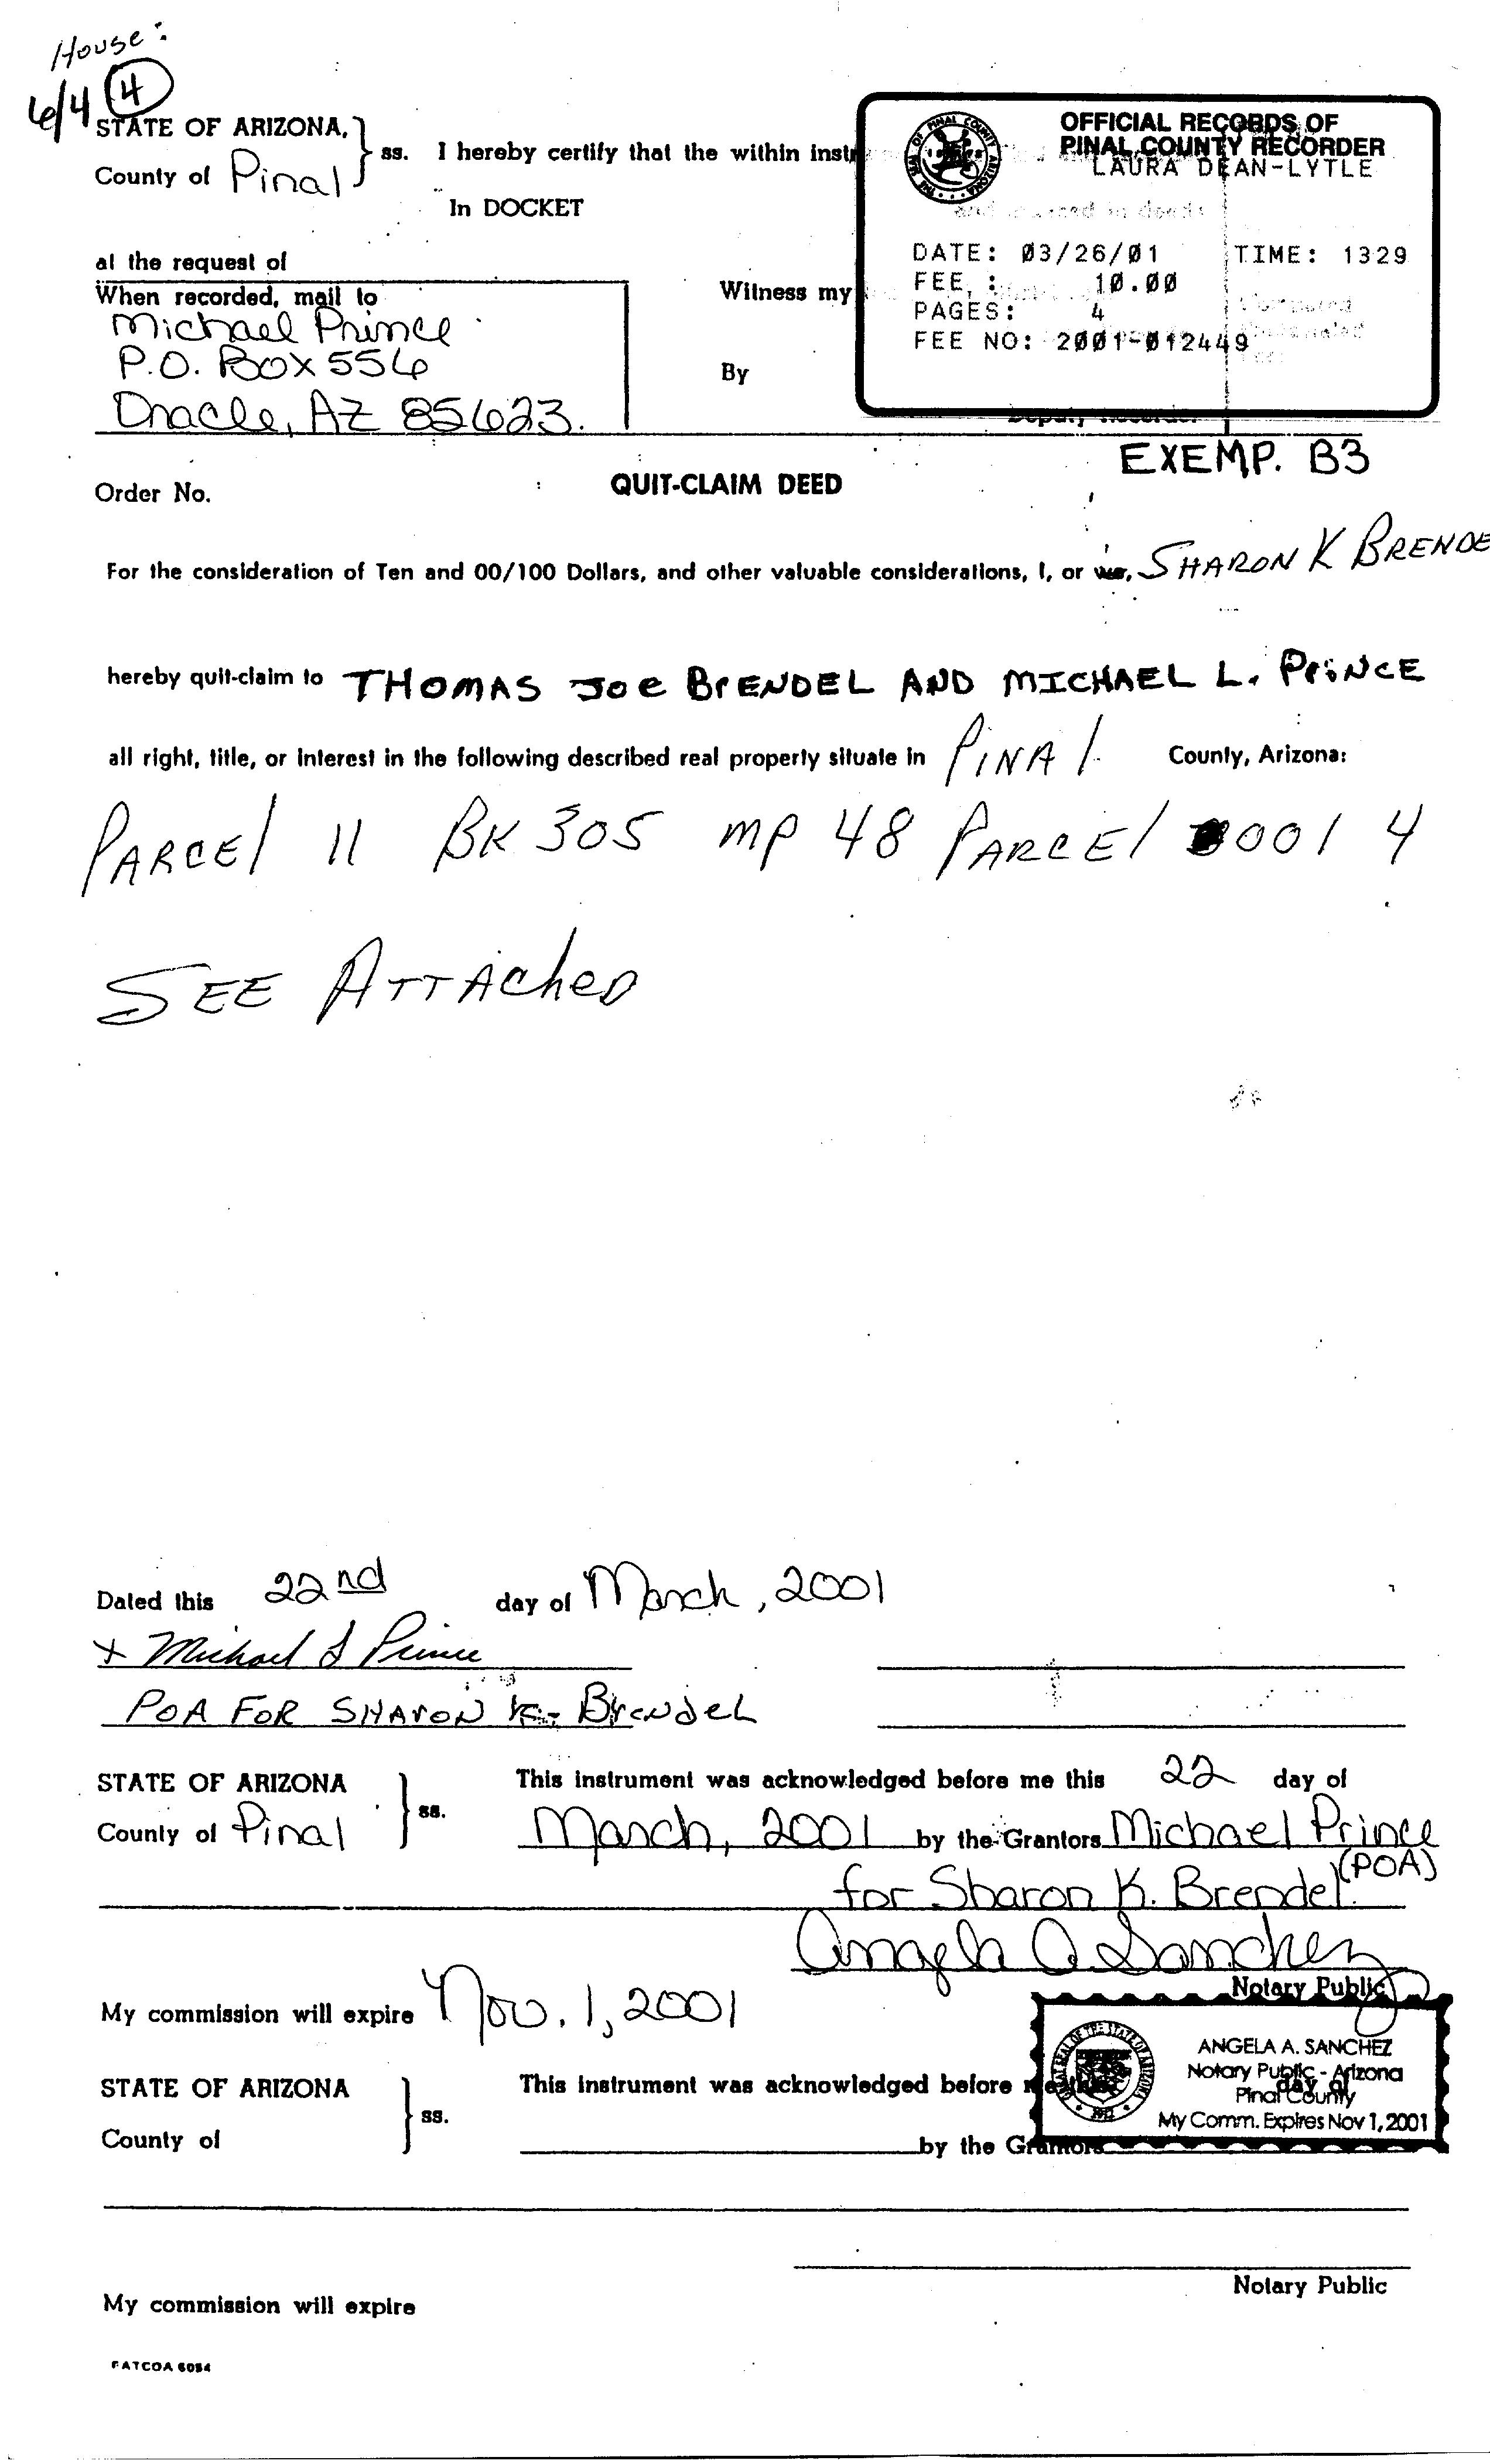 House:
6/4 4
STATE OF ARIZONA,
County of Pinal
ss. I hereby certify that the within instr
In DOCKET
OFFICIAL RECORDS OF
PINAL COUNTY RECORDER
LAURA DEAN-LYTLE
at the request of
When recorded, mail to
Michael Prince
P.O. Box 556
Oracle, AZ 85623.
Witness my
By
DATE: 03/26/01 TIME: 1329
FEE : 10.00
PAGES: 4
FEE NO: 2001-012449
EXEMP. B3
Order No.
QUIT-CLAIM DEED
For the consideration of Ten and 00/100 Dollars, and other valuable considerations, I, or we, SHARON K BRENDE
hereby quit-claim to THOMAS Joe BrENDEL AND MICHAEL L. PriNCE
all right, title, or interest in the following described real property situate in PINAl County, Arizona:
PARCEl 11 BK 305 MP 48 PARCEl 001 4
SEE ATTAcheD
Dated this 22nd day of March, 2001
x Michael L Prince
POA FOR SHAroN K. BrendeL
STATE OF ARIZONA
County of Pinal
ss.
This instrument was acknowledged before me this 22 day of
March, 2001 by the Grantors Michael Prince
(POA)
for Sharon K. Brendel.
Angela A. Sanchez
Notary Public
My commission will expire Nov. 1, 2001
GREAT SEAL OF THE STATE OF ARIZONA
1912
ANGELA A. SANCHEZ
Notary Public - Arizona
Pinal County
My Comm. Expires Nov 1, 2001
STATE OF ARIZONA
County of
ss.
This instrument was acknowledged before me this day of
by the Grantors
Notary Public
My commission will expire
FATCOA 6054